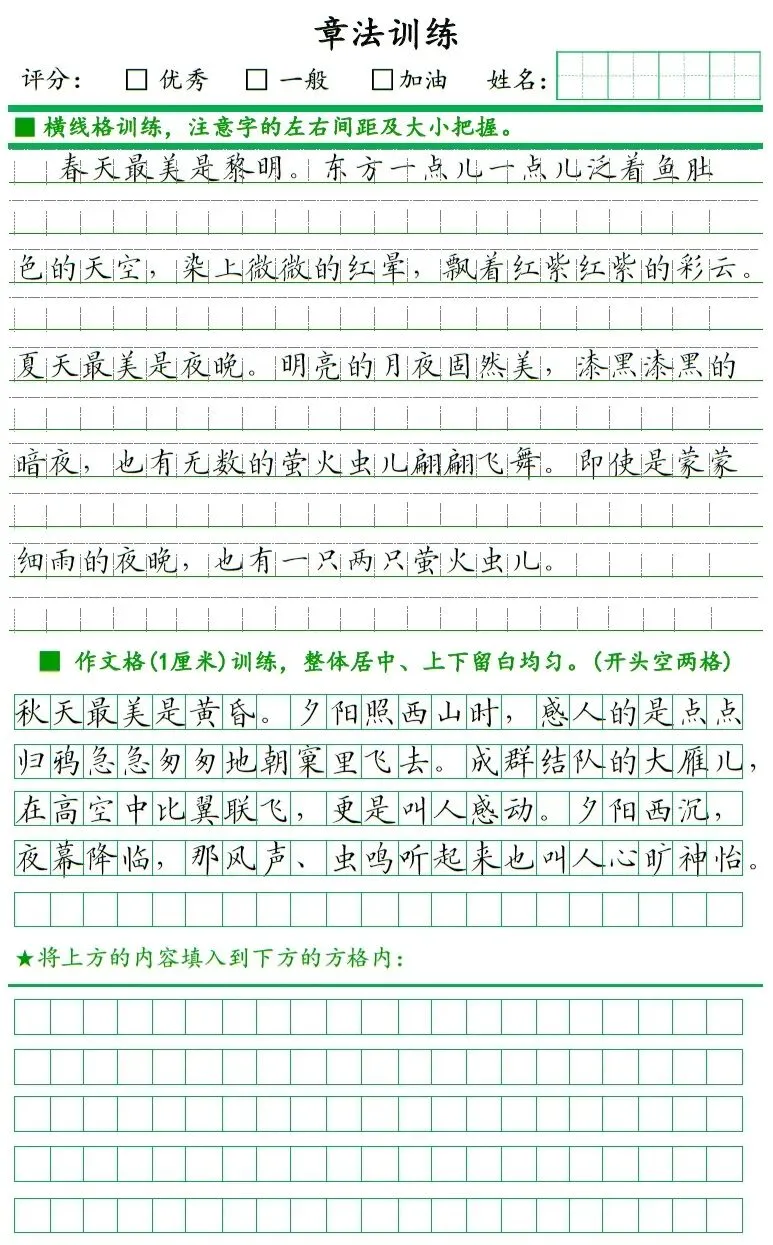 章法训练
评分： □ 优秀 □ 一般 □加油 姓名：
■ 横线格训练，注意字的左右间距及大小把握。
春天最美是黎明。东方一点儿一点儿泛着鱼肚
色的天空，染上微微的红晕，飘着红紫红紫的彩云。
夏天最美是夜晚。明亮的月夜固然美，漆黑漆黑的
暗夜，也有无数的萤火虫儿翩翩飞舞。即使是蒙蒙
细雨的夜晚，也有一只两只萤火虫儿。
■ 作文格(1厘米)训练，整体居中、上下留白均匀。(开头空两格)
秋天最美是黄昏。夕阳照西山时，感人的是点点
归鸦急急匆匆地朝窠里飞去。成群结队的大雁儿，
在高空中比翼联飞，更是叫人感动。夕阳西沉，
夜幕降临，那风声、虫鸣听起来也叫人心旷神怡。
★将上方的内容填入到下方的方格内：